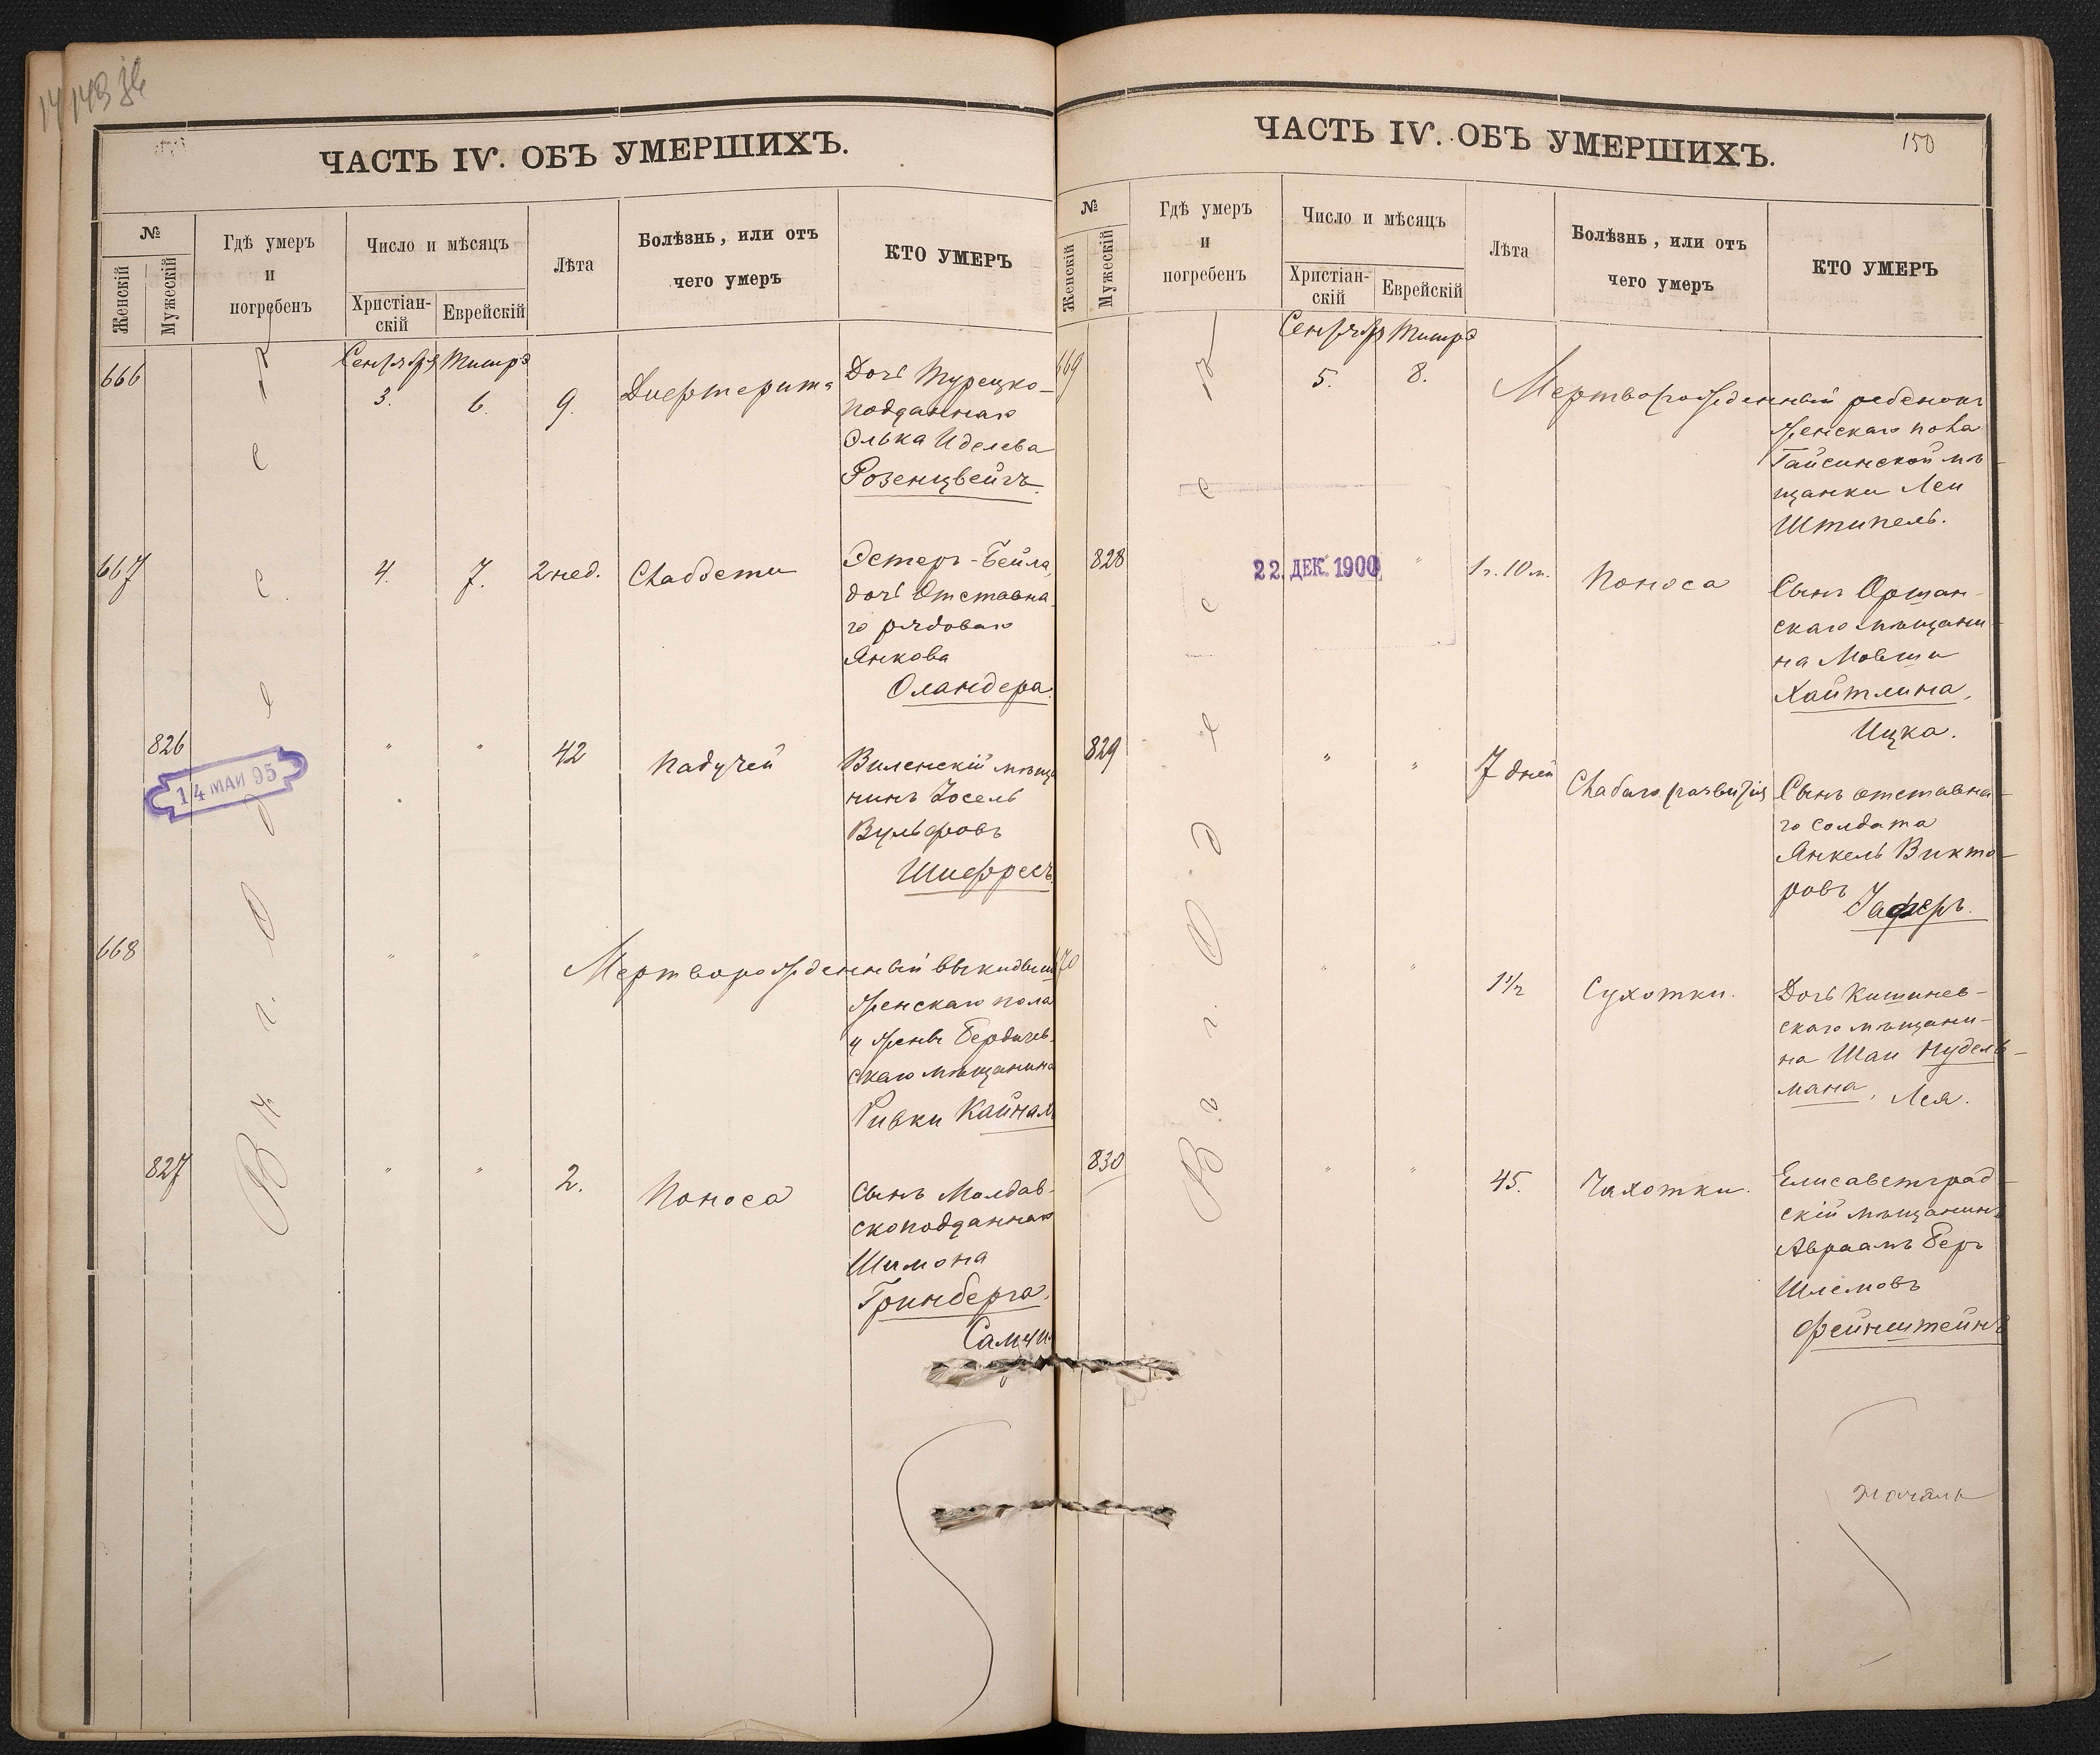 149
ЧАСТЬ IV. ОБЪ УМЕРШИХЪ.
№
Женскій
Мужескій
Гдѣ умеръ
и
погребенъ
Число и мѣсяцъ
Христіан-
скій
Еврейскій
Лѣта
Болѣзнь, или отъ
чего умеръ
КТО УМЕРЪ
Сентября Тишрэ
666 3. 6. 9. Дифтерита Дочь Турецко-
подданнаго
Элька Иделева
Розенцвейгъ.
667 4. 7. 2 нед. Слабости Эстеръ-Бейла,
дочь Отставна
го рядоваго
Янкова
Оландера.
826 " " 42 Падучей Виленскій мѣща
нинъ Іосель
Вульфовъ
Шифресъ
14 МАИ 95
668 " " Мертворожденный выкидыш
женскаго пола
у жены Бердичев-
скаго мѣщанина
Ривки
827 " " 2. Поноса Сынъ Молдав-
скоподданнаго
Шимона
Гринберга.
В г. Одессѣ
ЧАСТЬ IV. ОБЪ УМЕРШИХЪ.
150
№
Женскій
Мужескій
Гдѣ умеръ
и
погребенъ
Число и мѣсяцъ
Христіан-
скій
Еврейскій
Лѣта
Болѣзнь, или отъ
чего умеръ
КТО УМЕРЪ
Сентября Тишрэ
669 5. 8. Мертворожденный ребенокъ
женскаго пола
Гайсинской мѣ-
щанки Леи
Штипель.
828 " " 1 г. 10 м. Поноса Сынъ Оршан-
скаго мѣщани-
на Мовши
Хайтлина,
Ицка.
22. ДЕК. 1900
829 " " 7 дней Слабаго развитія Сынъ отставна-
го солдата
Янкель Викто-
ровъ
670 " " 1 1/2 Сухотки. Дочь Кишинев-
скаго мѣщани-
на Шаи Нудель-
мана, Лея.
830 " " 45. Чахотки. Елисаветград-
скій мѣщанинъ
Авраамъ Беръ
Шлемовъ
Фейнштейнъ
В г. Одессѣ